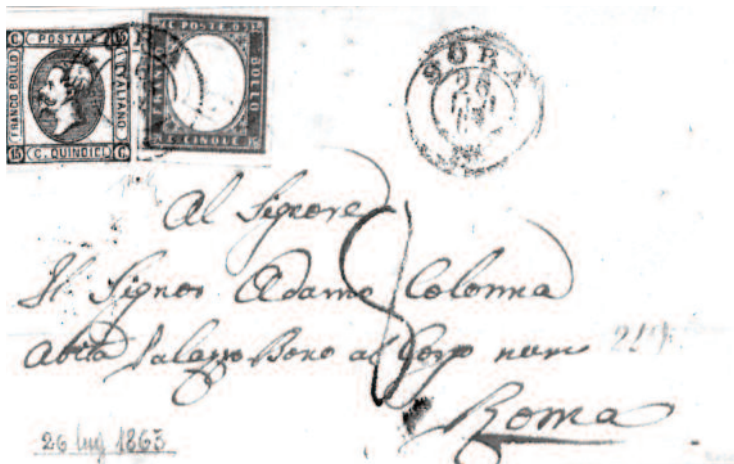 C POSTALE 15
FRANCO BOLLO
ITALIANO
15 C. QUINDICI C.
C. POSTE 05
FRANCO
BOLLO
C. CINQUE
SORA
26
Al Signore
Il Signor Adamo Colonna
abita Palazzo Bono al Corso num
Roma
26 lug 1863